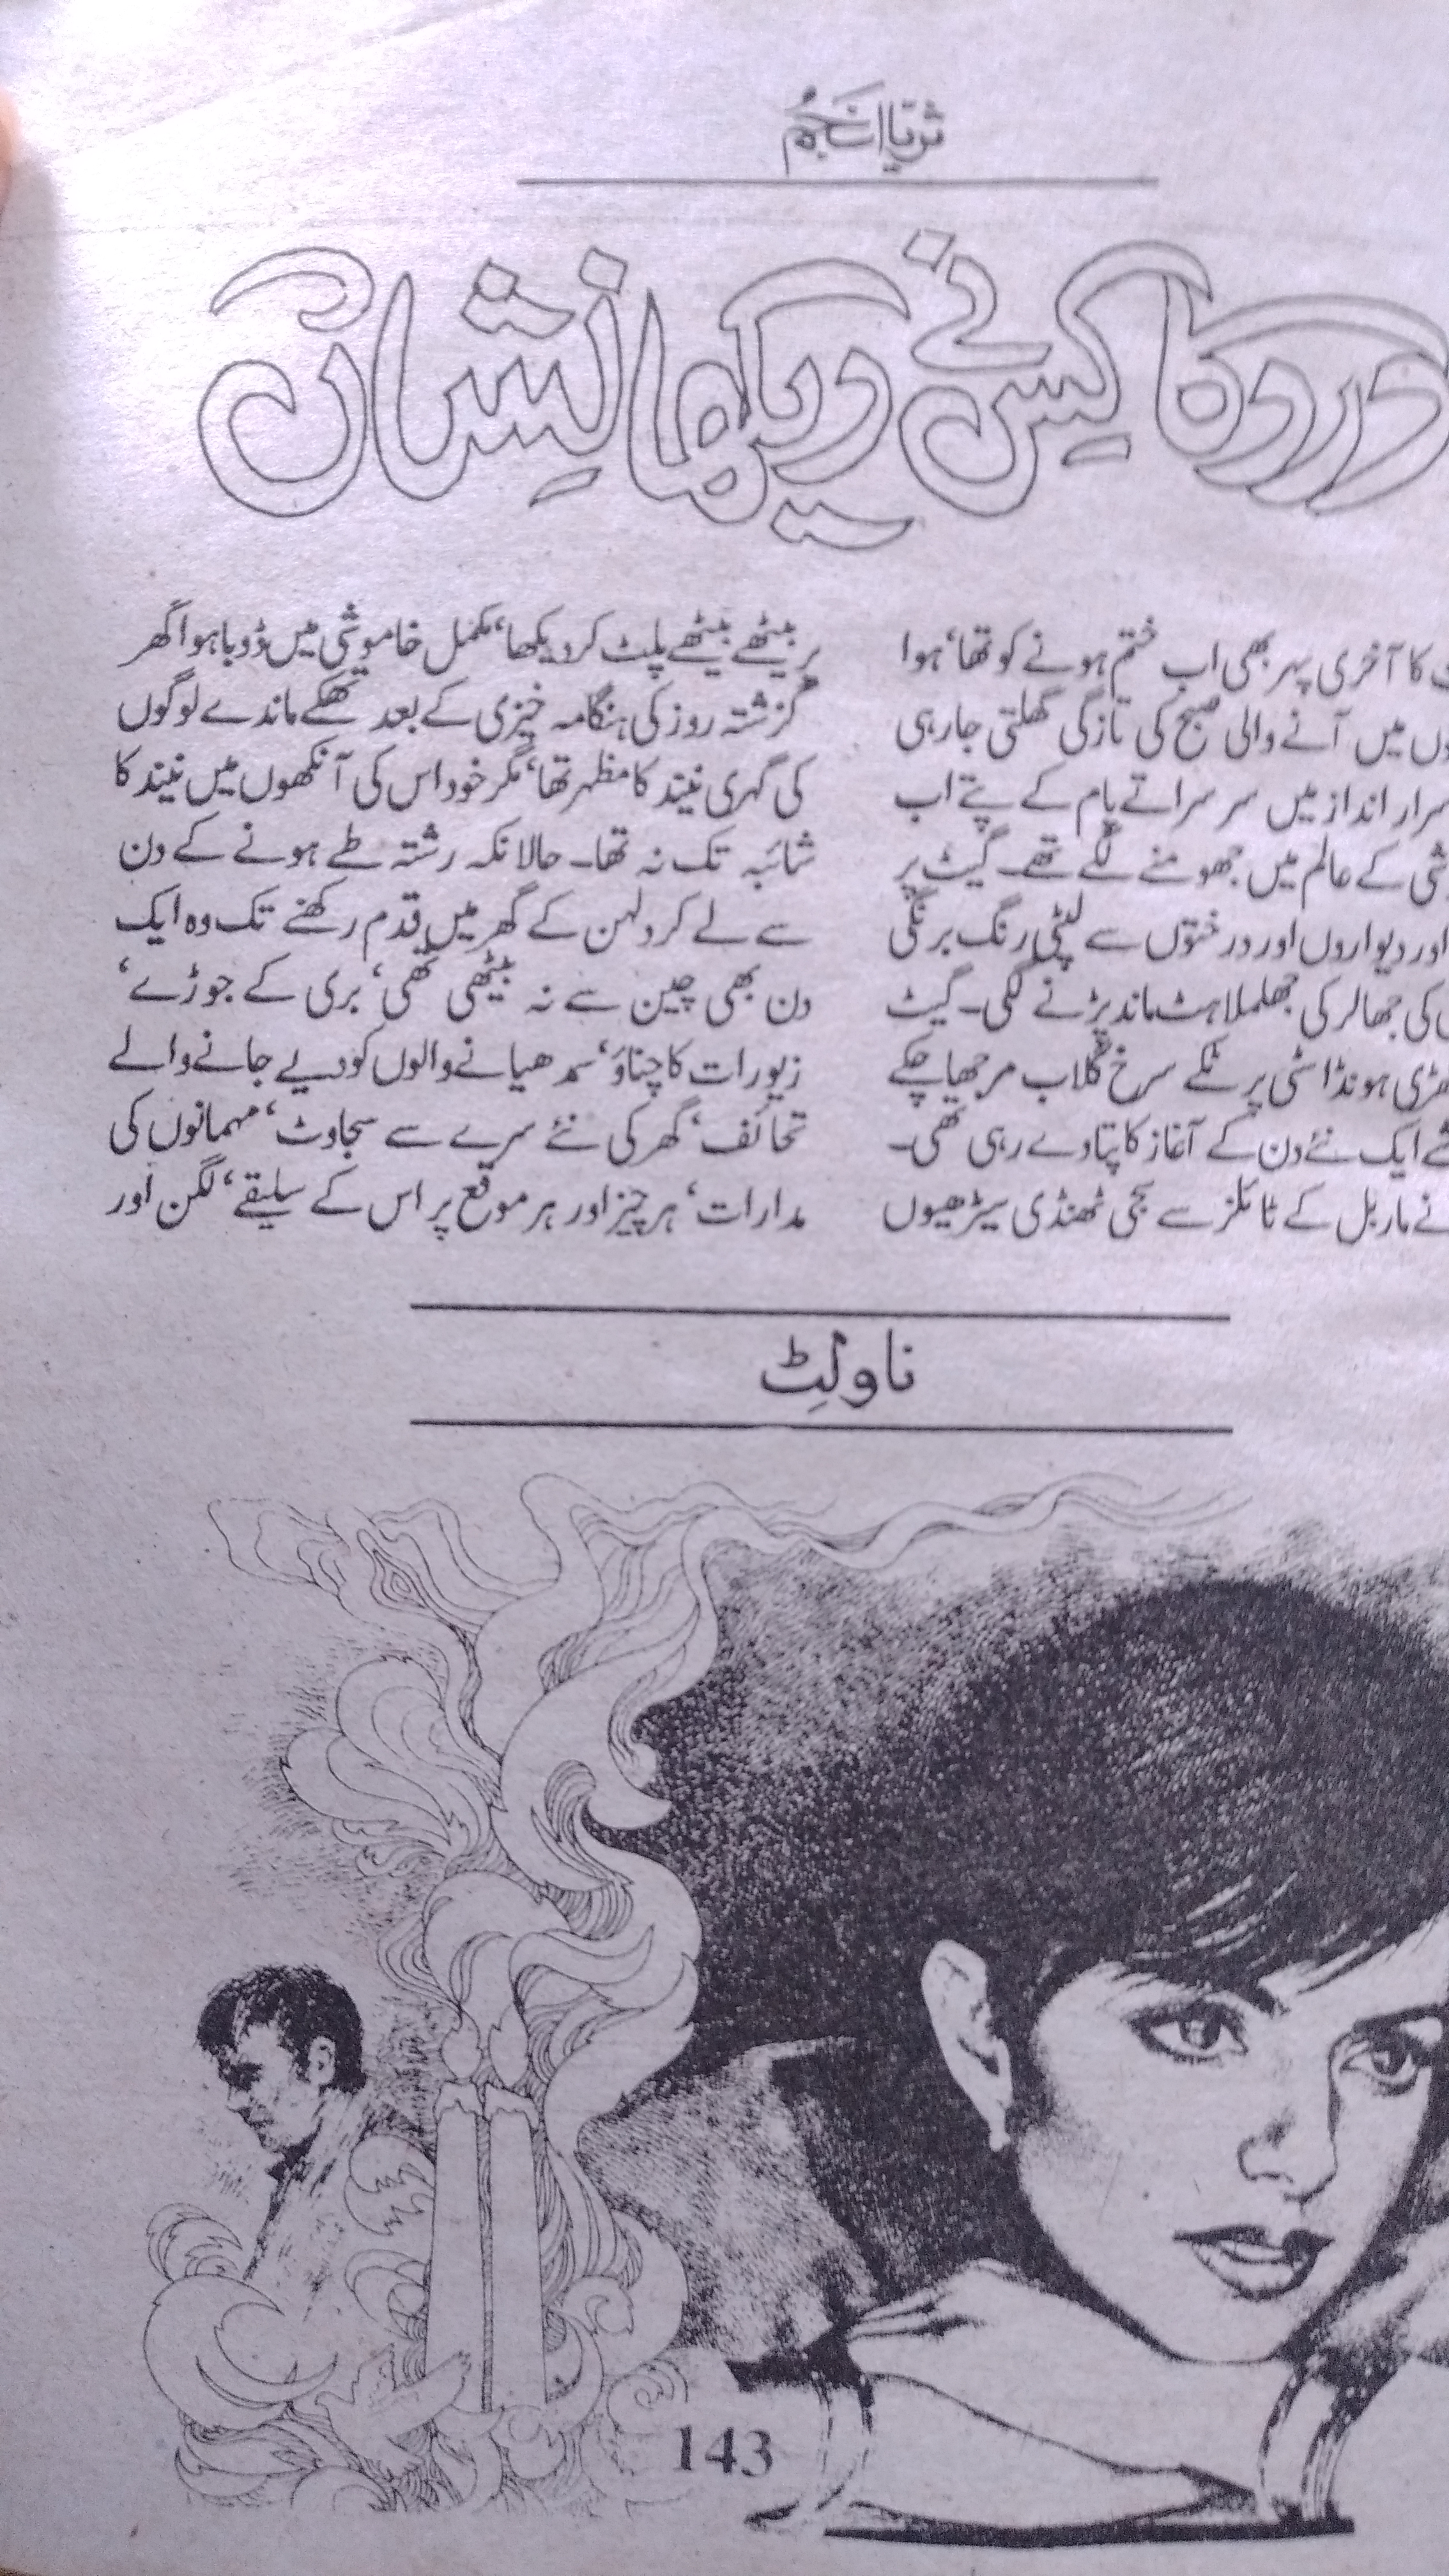 ثریا انجم
درد کا کس نے دیکھا نشاں
کا آخری پہر بھی اب ختم ہونے کو تھا‘ ہوا
میں آنے والی صبح کی تازگی گھلتی جا رہی
انداز میں سر سراتے پام کے پتے اب
کے عالم میں جھومنے لگے تھے۔ گیٹ پر
اور دیواروں اور درختوں سے لپٹی رنگ برنگی
کی جھالر کی جھلملاہٹ ماند پڑنے لگی۔ گیٹ
ہونڈا سٹی پر ٹکے سرخ گلاب مرجھا چکے
ایک نئے دن کے آغاز کا پتا دے رہی تھی۔
نے ماربل کے ٹائلز سے سجی ٹھنڈی سیڑھیوں
پر بیٹھے بیٹھے پلٹ کر دیکھا‘ مکمل خاموشی میں ڈوبا ہوا گھر
گزشتہ روز کی ہنگامہ خیزی کے بعد تھکے ماندے لوگوں
کی گہری نیند کا مظہر تھا‘ مگر خود اس کی آنکھوں میں نیند کا
شائبہ تک نہ تھا۔ حالانکہ رشتہ طے ہونے کے دن
سے لے کر دلہن کے گھر میں قدم رکھنے تک وہ ایک
دن بھی چین سے نہ بیٹھی تھی‘ بری کے جوڑے‘
زیورات کا چناؤ‘ سمدھیانے والوں کو دیے جانے والے
تحائف‘ گھر کی نئے سرے سے سجاوٹ‘ مہمانوں کی
مدارات‘ ہر چیز اور ہر موقع پر اس کے سلیقے‘ لگن اور
ناولٹ
143